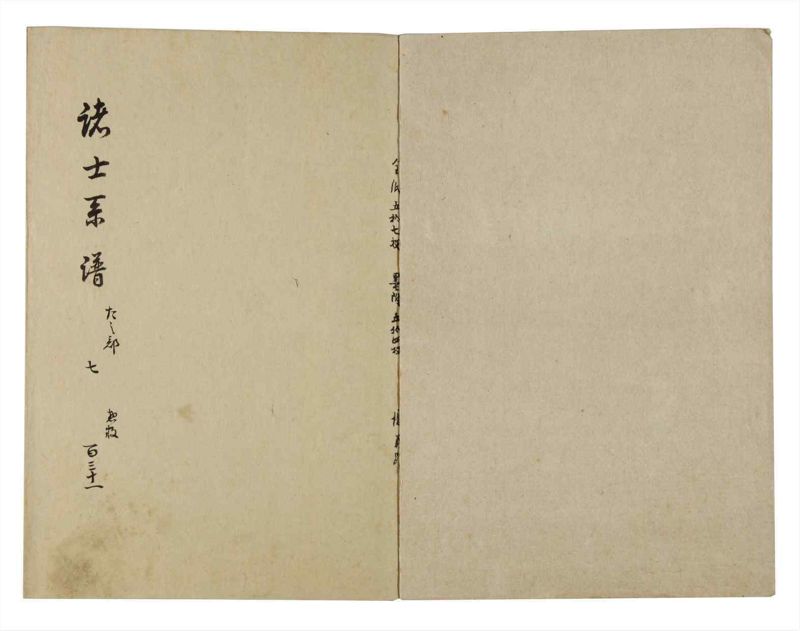 全紙五拾七枚 墨附五拾四枚
諸士系譜 た之部 七 惣数 百三十一